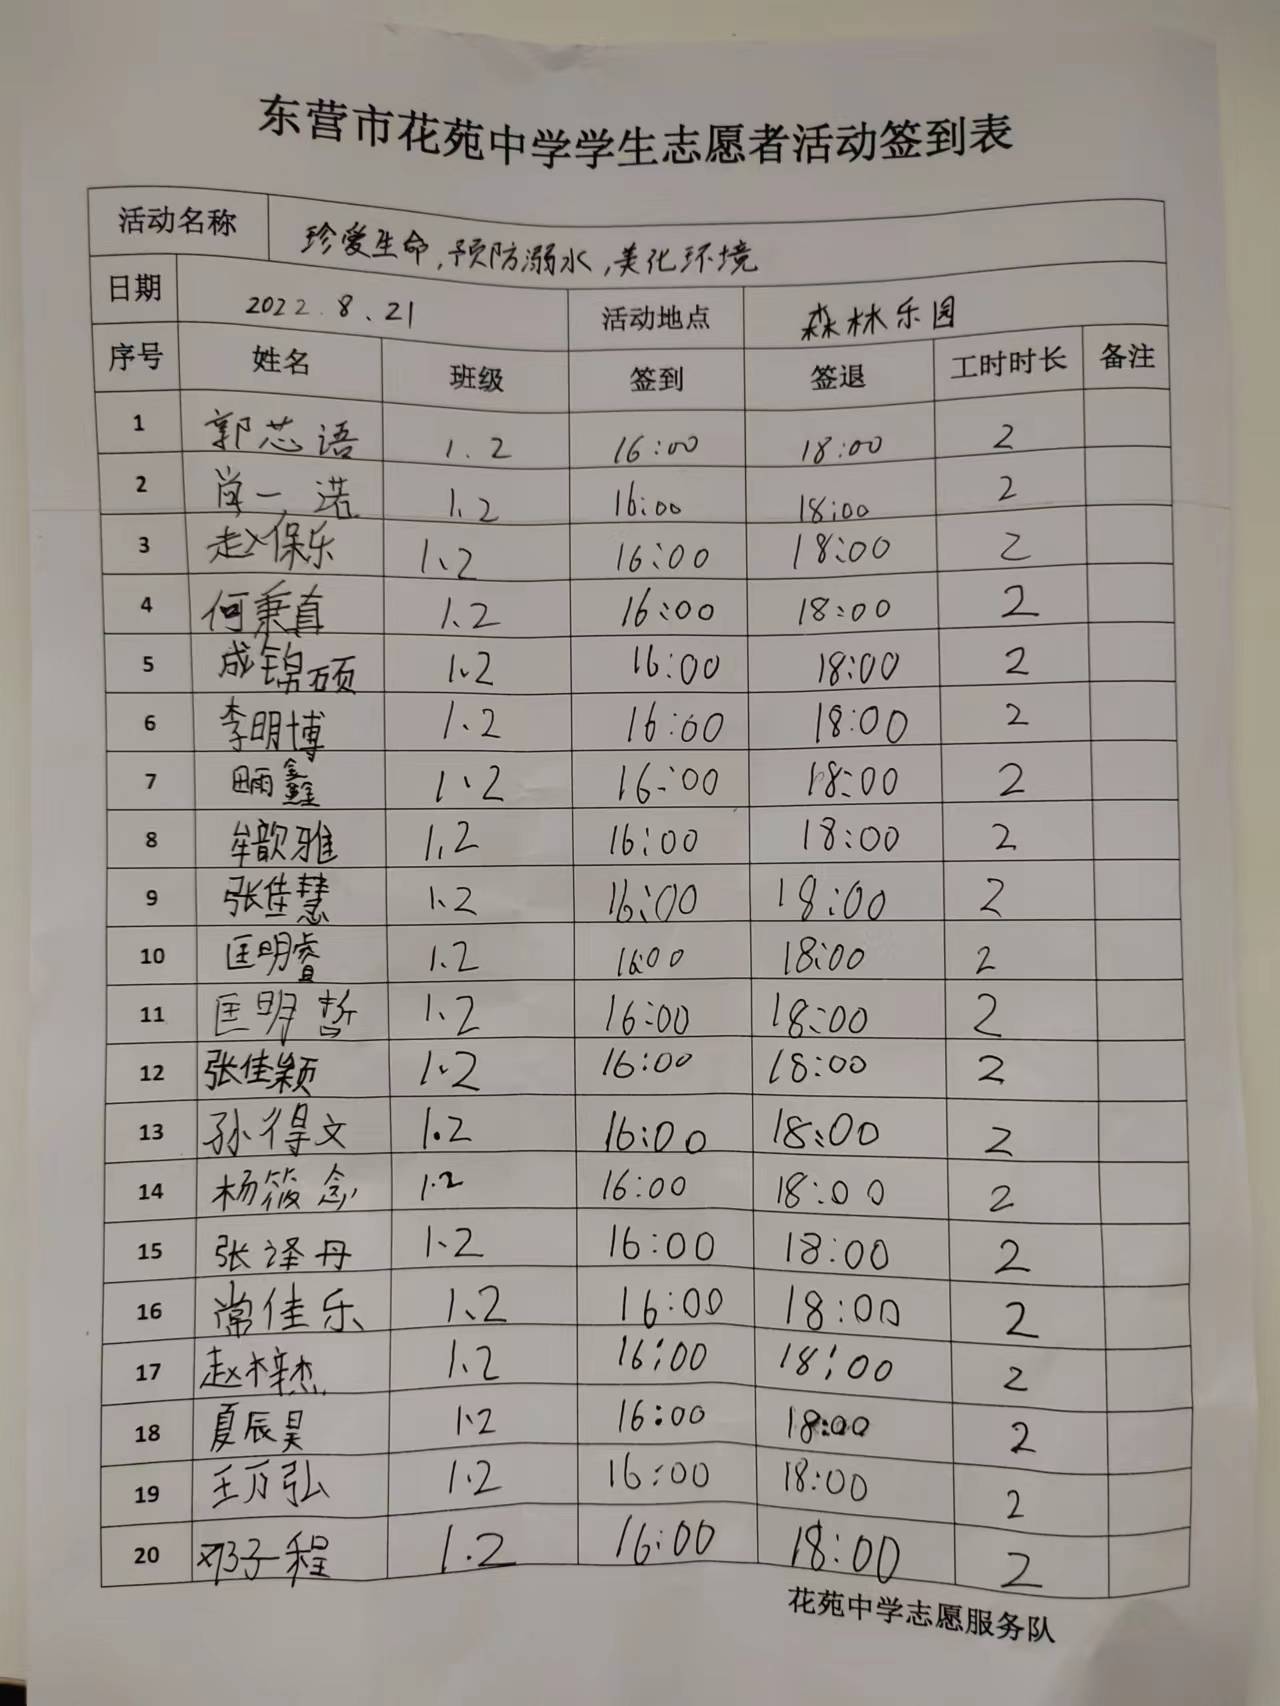 东营市花苑中学学生志愿者活动签到表
活动名称 珍爱生命,预防溺水,美化环境
日期 2022.8.21 活动地点 森林乐园
序号 姓名 班级 签到 签退 工时时长 备注
1 郭芯语 1.2 16:00 18:00 2
2 肖一诺 1.2 16:00 18:00 2
3 赵保乐 1.2 16:00 18:00 2
4 何秉真 1.2 16:00 18:00 2
5 成锦硕 1.2 16:00 18:00 2
6 李明博 1.2 16:00 18:00 2
7 田雨鑫 1.2 16:00 18:00 2
8 牟歆雅 1.2 16:00 18:00 2
9 张佳慧 1.2 16:00 18:00 2
10 匡明睿 1.2 16:00 18:00 2
11 匡明哲 1.2 16:00 18:00 2
12 张佳颖 1.2 16:00 18:00 2
13 孙得文 1.2 16:00 18:00 2
14 杨筱念 1.2 16:00 18:00 2
15 张泽丹 1.2 16:00 18:00 2
16 常佳乐 1.2 16:00 18:00 2
17 赵梓杰 1.2 16:00 18:00 2
18 夏辰昊 1.2 16:00 18:00 2
19 王万弘 1.2 16:00 18:00 2
20 邓子程 1.2 16:00 18:00 2
花苑中学志愿服务队